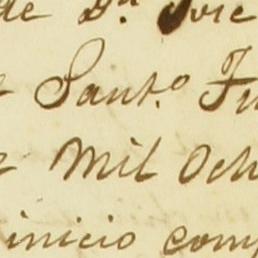 de D.ⁿ Jose
Sant.º Fu
Mil Och
inicio com